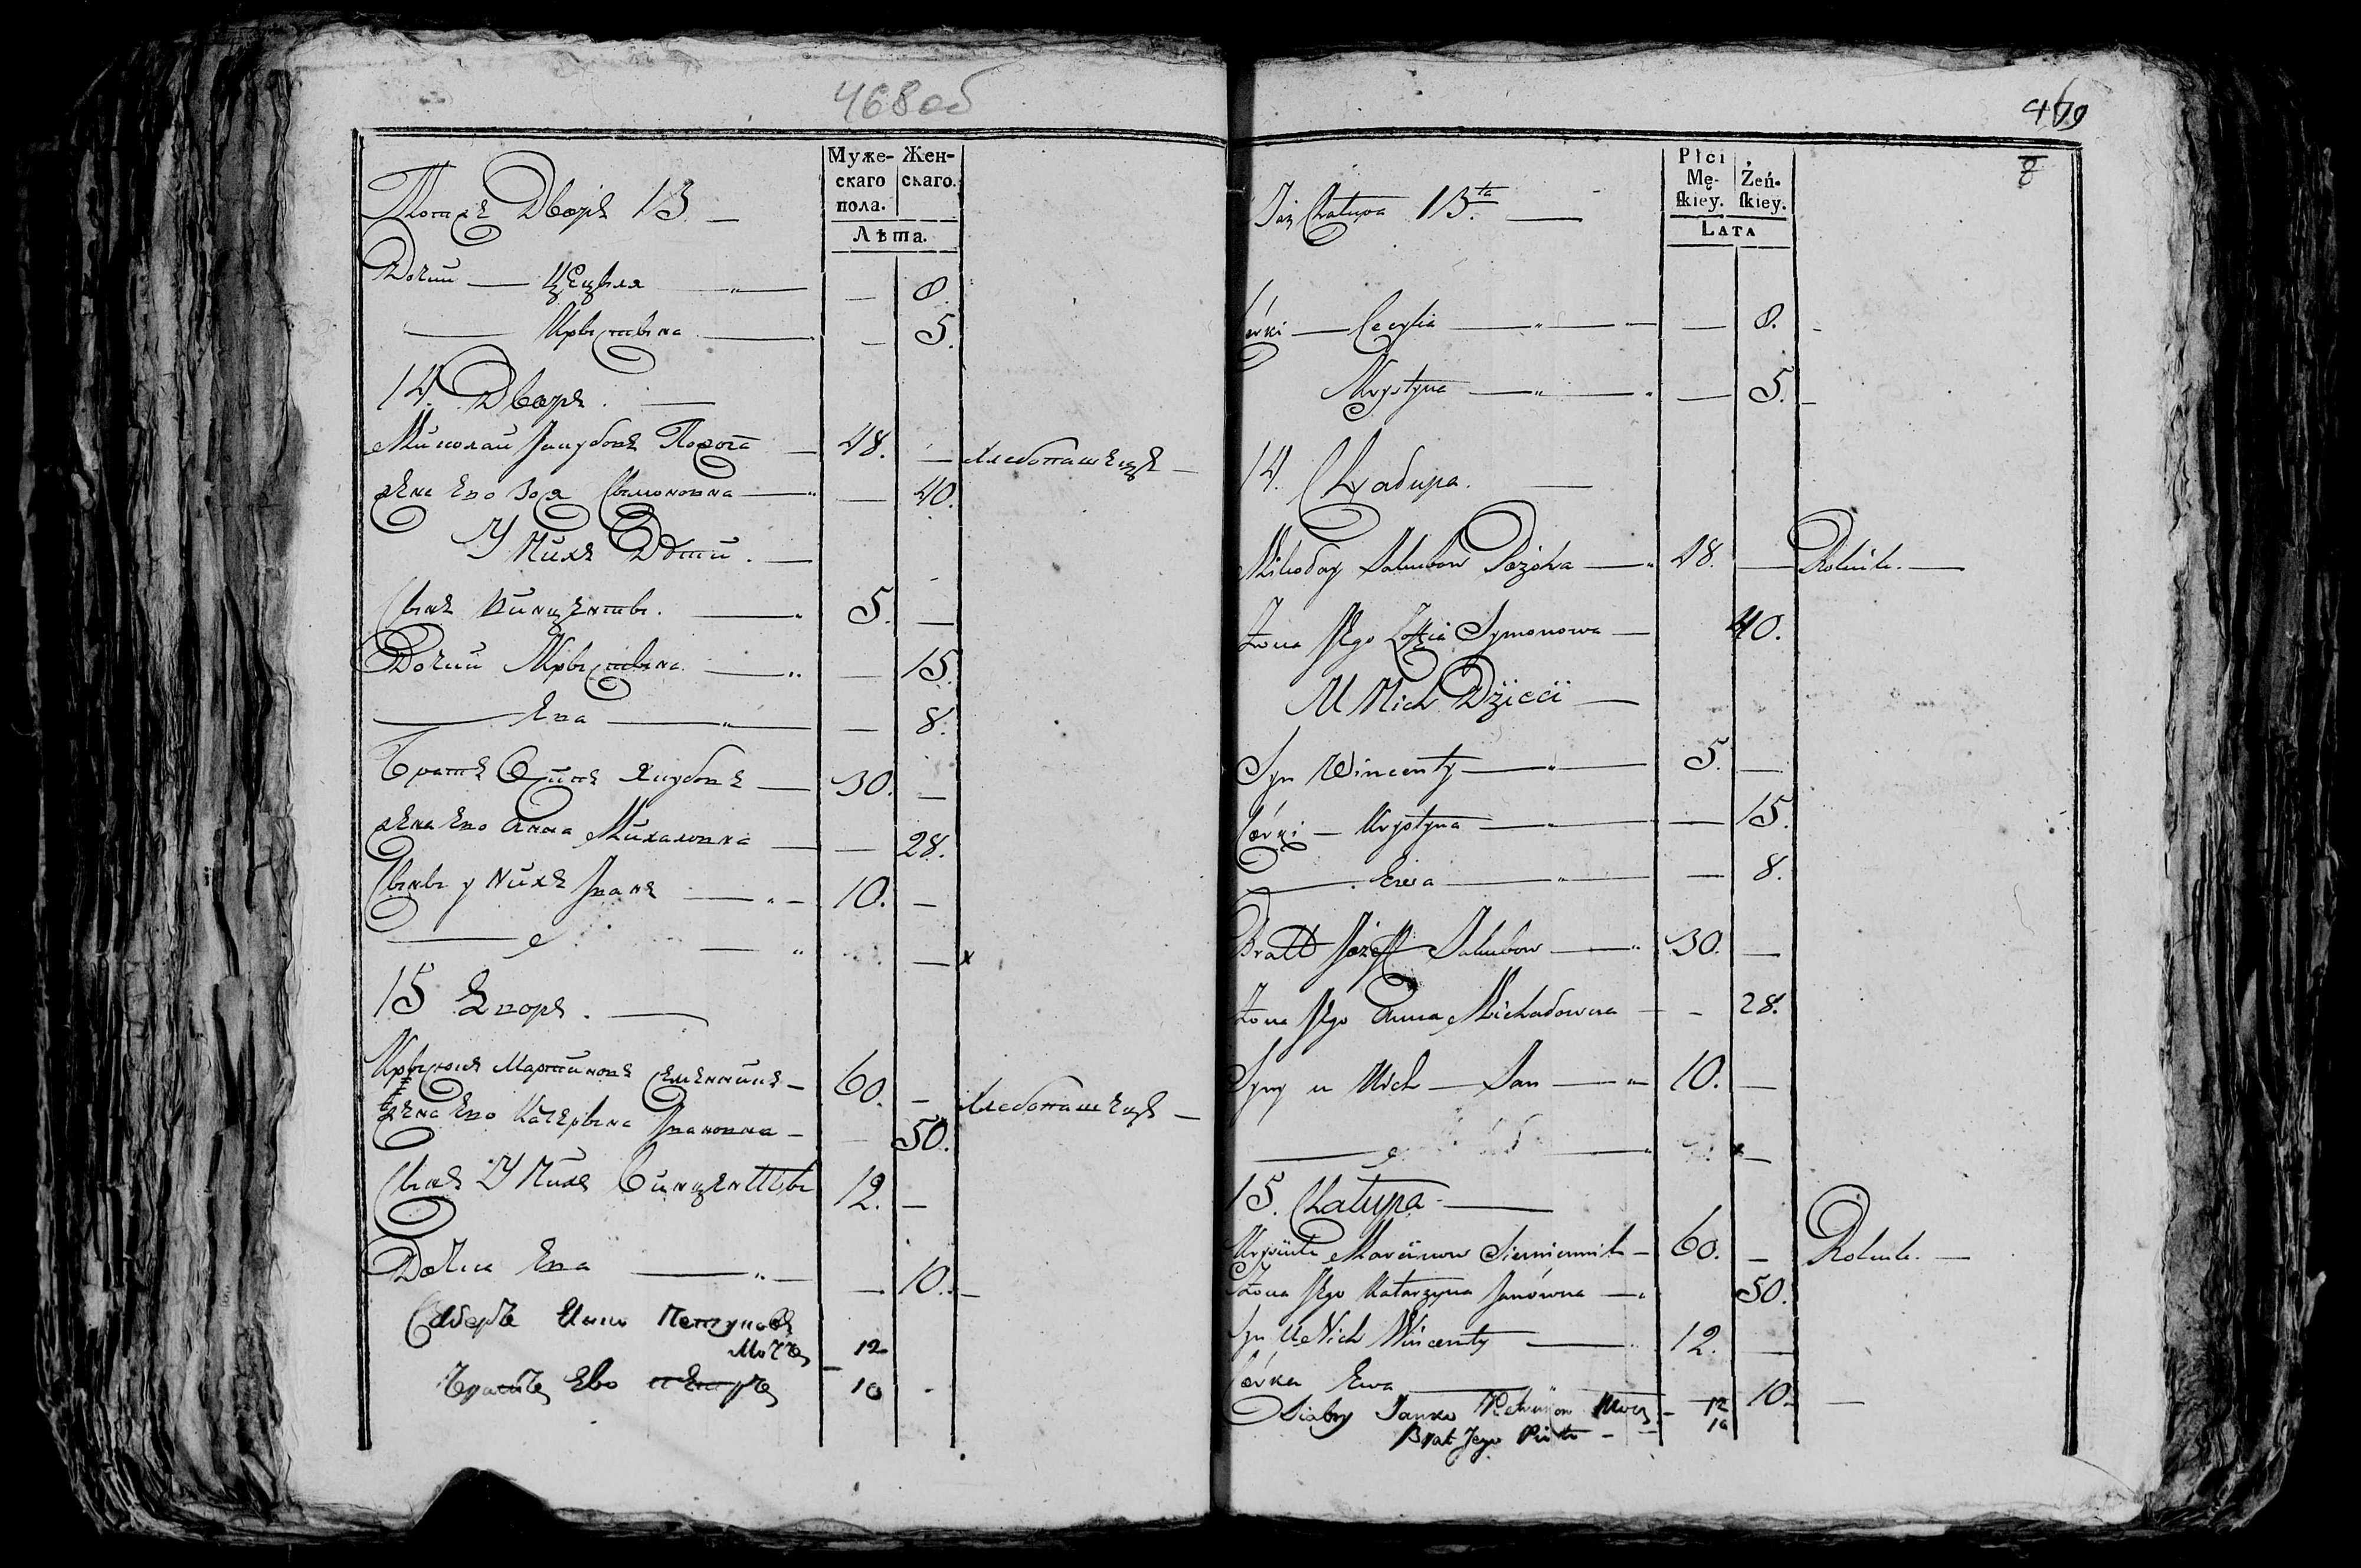 468 об
Муже-скаго пола.
Жен-скаго.
Лѣта.
Тотже Дворъ 13 —
Дочки — Цецыля — 8.
— Крыстына — 5.
14. Дворъ. —
Миколай Якубовъ — 48. — Хлебопашецъ —
жена ево Зося Сымоновна — 40.
У Нихъ Дѣти. —
Сынъ Винценты. — 5. —
Дочки Крыстына. — 15.
— Ева — 8.
Братъ Якубовъ — 30. —
жена ево Анна Михаловна — 28.
Сыны у Нихъ Иванъ — 10. —
15 Дворъ. —
Мартиновъ — 60. — Хлебопашецъ —
жена ево Катерына Ивановна — 50.
Сынъ У Нихъ Винценты 12. —
Дочка Ева — 10. —
Сяберъ Янко
12
братъ Ево Петръ 10 -
469
8
Płci Mę-ſkiey.
Żeń-ſkiey.
Lata
Taż Chatupa 13.ta —
Córki — Cecylia — 8. -
Krystyna — 5. -
14. Chałupa. —
Mikołay Jakubow — 48. — Rolnik. —
Żona Jego Zofia Symonowa — 40.
U Nich Dzieci —
Syn Wincenty — 5. —
Córki — Krystyna — 15.
— Ewa — 8.
Bratt Józeff Jakubow — 30. —
Żona Jego Anna Michałowna — 28.
Syny u Nich — Jan — 10. —
15. Chatupa —
Marcinow Siemiennik — 60. — Rolnik. —
Żona Jego Katarzyna Janówna — 50.
Syn U Nich Wincenty — 12. —
Córka Ewa — 10. —
Siabry Janko — 12
Brat Jego Piotr — 10